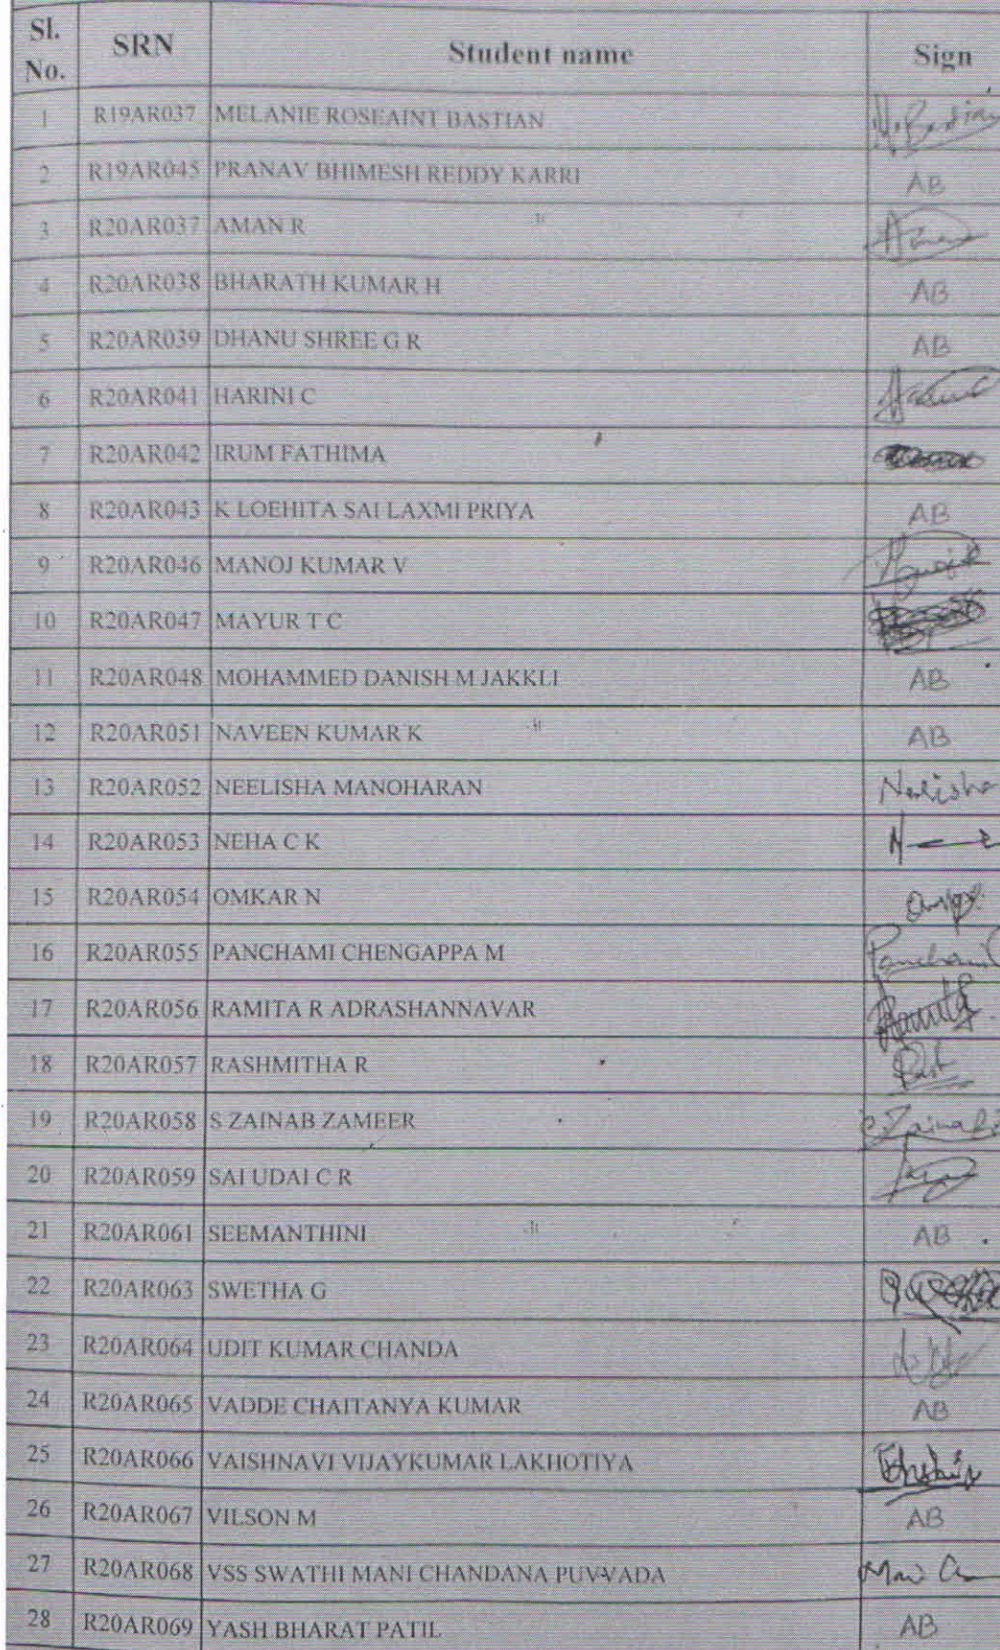 Sl. No. SRN Student name Sign
1 R19AR037 MELANIE ROSEAINT BASTIAN M. Bastian
2 R19AR045 PRANAV BHIMESH REDDY KARRI AB
3 R20AR037 AMAN R
4 R20AR038 BHARATH KUMAR H AB
5 R20AR039 DHANU SHREE G R AB
6 R20AR041 HARINI C
7 R20AR042 IRUM FATHIMA
8 R20AR043 K LOEHITA SAI LAXMI PRIYA AB
9 R20AR046 MANOJ KUMAR V
10 R20AR047 MAYUR T C
11 R20AR048 MOHAMMED DANISH M JAKKLI AB
12 R20AR051 NAVEEN KUMAR K AB
13 R20AR052 NEELISHA MANOHARAN Neelisha
14 R20AR053 NEHA C K
15 R20AR054 OMKAR N
16 R20AR055 PANCHAMI CHENGAPPA M Panchami
17 R20AR056 RAMITA R ADRASHANNAVAR
18 R20AR057 RASHMITHA R
19 R20AR058 S ZAINAB ZAMEER S. Zainab
20 R20AR059 SAI UDAI C R
21 R20AR061 SEEMANTHINI AB
22 R20AR063 SWETHA G
23 R20AR064 UDIT KUMAR CHANDA
24 R20AR065 VADDE CHAITANYA KUMAR AB
25 R20AR066 VAISHNAVI VIJAYKUMAR LAKHOTIYA
26 R20AR067 VILSON M AB
27 R20AR068 VSS SWATHI MANI CHANDANA PUVVADA
28 R20AR069 YASH BHARAT PATIL AB